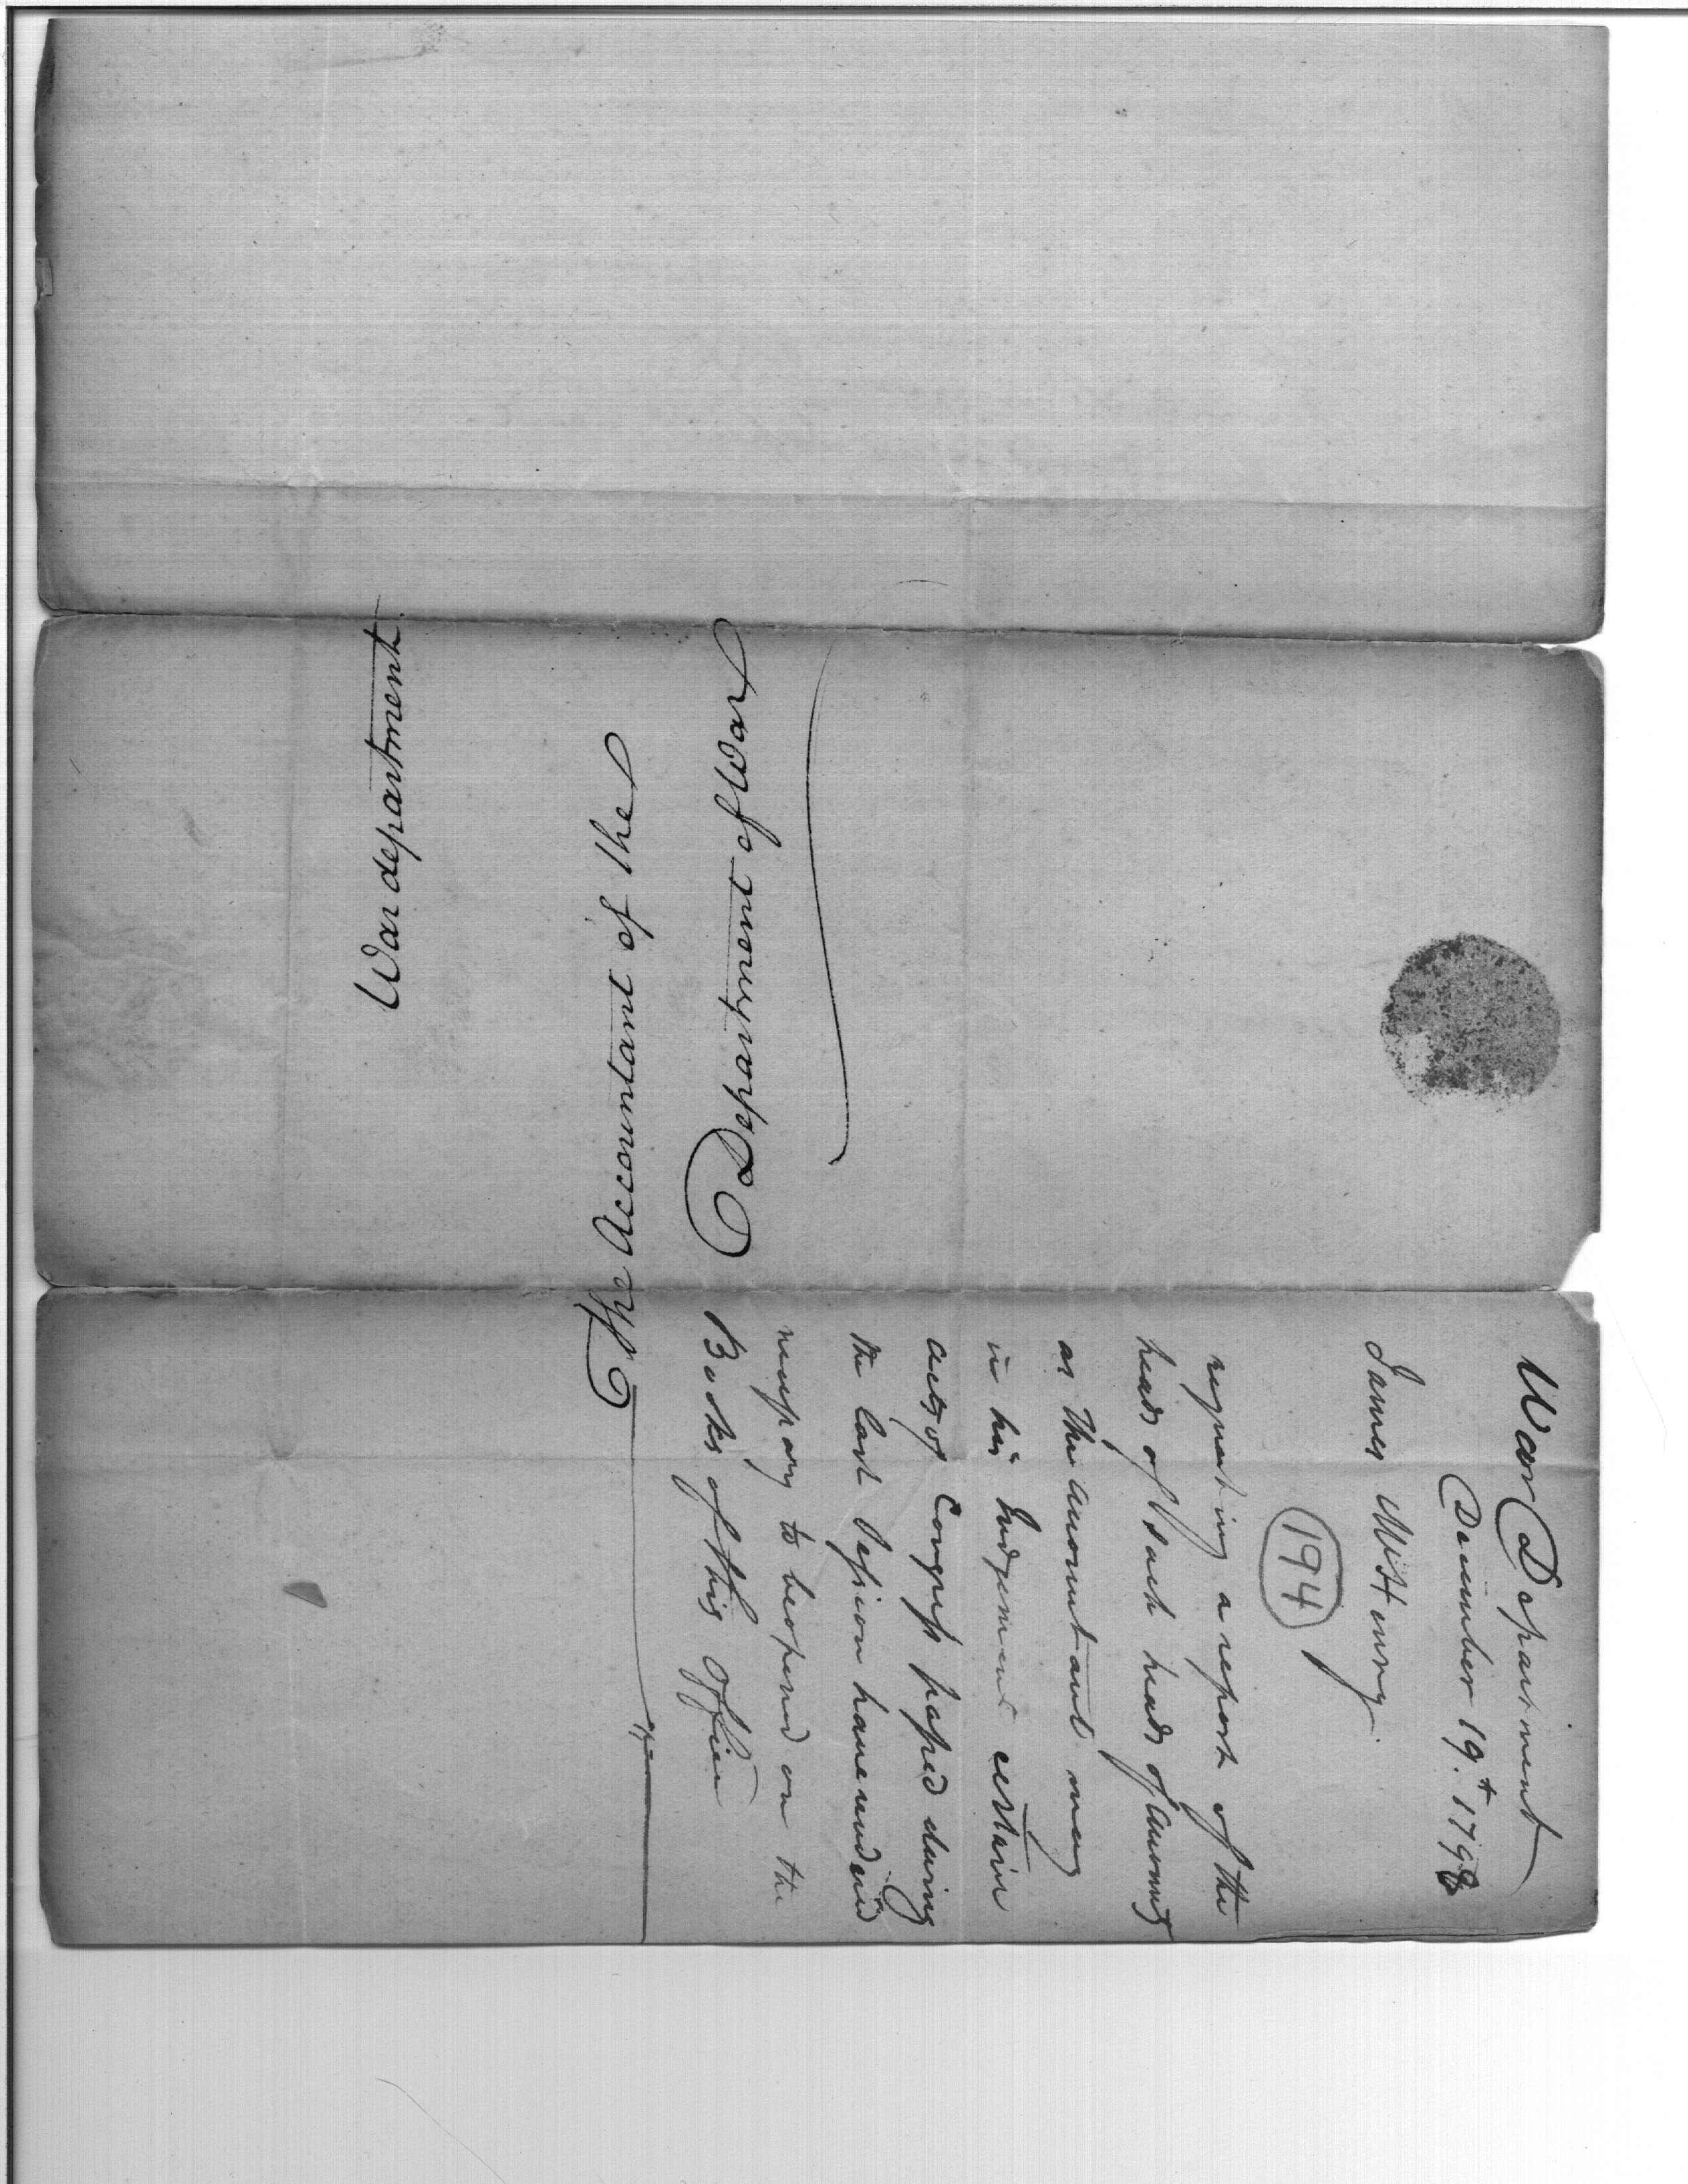 War department
The Accountant of the
Department of War
War Department
December 19.t 1798
James McHenry
194
requesting a report of the
heads of Such heads of Accounts
as the accountant may
in his Judgement certain
acts of Congress passed during
the last Session have rendered
necessary to be opened on the
Books of this Office